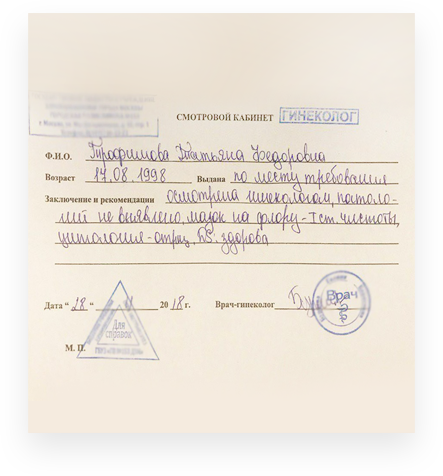 СМОТРОВОЙ КАБИНЕТ ГИНЕКОЛОГ
Ф.И.О. Трофимова Татьяна Федоровна
Возраст 17.08.1998 Выдана по месту требования
Заключение и рекомендации осмотрена гинекологом, патоло-
гий не выявлено, мазок на флору - I ст. чистоты,
цитология - отриц, DS: здорова
Дата " 28 " 11 20 18 г. Врач-гинеколог
Врач
Для
справок
М. П.